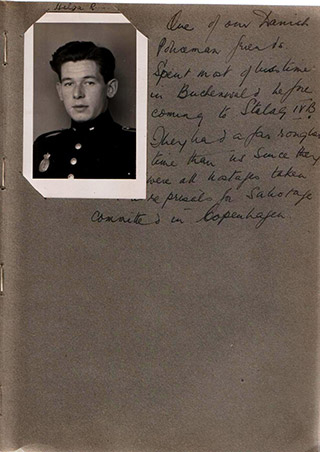 Helge R.
One of our Danish
Policeman friends
Spent most of his time
in Buchenwald before
coming to Stalag IVB.
They had a far rougher
time than us since they
were all hostages taken
reprisals for Sabotage
committed in Copenhagen